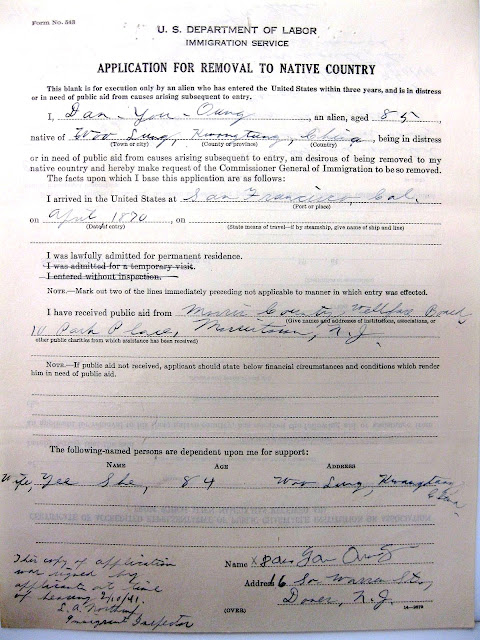 Form No. 543
U. S. DEPARTMENT OF LABOR
IMMIGRATION SERVICE
APPLICATION FOR REMOVAL TO NATIVE COUNTRY
This blank is for execution only by an alien who has entered the United States within three years, and is in distress
or in need of public aid from causes arising subsequent to entry.
I, Dan - You - Oung, an alien, aged 85,
native of Woo Lung, Kwongtung, China, being in distress
(Town or city) (County or province) (Country)
or in need of public aid from causes arising subsequent to entry, am desirous of being removed to my
native country and hereby make request of the Commissioner General of Immigration to be so removed.
The facts upon which I base this application are as follows:
I arrived in the United States at San Francisco, Cal.
(Port or place)
on April 1870, on
(Date of entry) (State means of travel—if by steamship, give name of ship and line)
I was lawfully admitted for permanent residence.
I was admitted for a temporary visit.
I entered without inspection.
NOTE.—Mark out two of the lines immediately preceding not applicable to manner in which entry was effected.
I have received public aid from Morris County Wellfare Board,
(Give names and addresses of institutions, associations, or
10 Park Place, Morristown, N.J.
other public charities from which assistance has been received)
NOTE.—If public aid not received, applicant should state below financial circumstances and conditions which render
him in need of public aid.
The following-named persons are dependent upon me for support:
NAME AGE ADDRESS
Wife, Yee She, 84 Woo Lung, Kwongtung
China
This copy of application
was signed by
applicant at time
of hearing 2/10/41.
Immigrant Inspector
Name X
Address 16 So Warren St,
Dover, N.J.
(OVER)